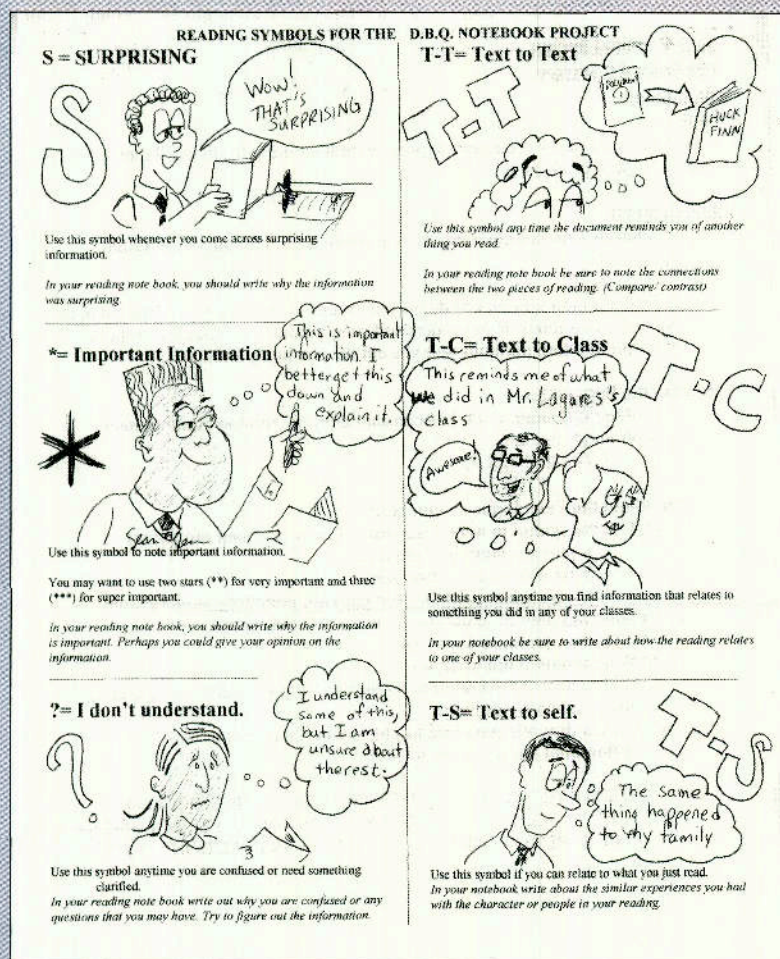 READING SYMBOLS FOR THE D.B.Q. NOTEBOOK PROJECT
S = SURPRISING
S
WOW!
THAT'S
SURPRISING
Use this symbol whenever you come across surprising
information.
In your reading note book, you should write why the information
was surprising.
*= Important Information
This is important
information. I
better get this
down and
explain it.
*
Sean
Use this symbol to note important information.
You may want to use two stars (**) for very important and three
(***) for super important.
In your reading note book, you should write why the information
is important. Perhaps you could give your opinion on the
information.
?= I don't understand.
I understand
some of this,
but I am
unsure about
the rest.
?
Use this symbol anytime you are confused or need something
clarified.
In your reading note book write out why you are confused or any
questions that you may have. Try to figure out the information.
T-T= Text to Text
T-T
DOCUMENT
1
HUCK
FINN
Use this symbol any time the document reminds you of another
thing you read.
In your reading note book be sure to note the connections
between the two pieces of reading. (Compare/ contrast)
T-C= Text to Class
T-C
This reminds me of what
we did in Mr. Lagares's
class
Awesome!
Use this symbol anytime you find information that relates to
something you did in any of your classes.
In your notebook be sure to write about how the reading relates
to one of your classes.
T-S= Text to self.
T-S
The same
thing happened
to my family
Use this symbol if you can relate to what you just read.
In your notebook write about the similar experiences you had
with the character or people in your reading.